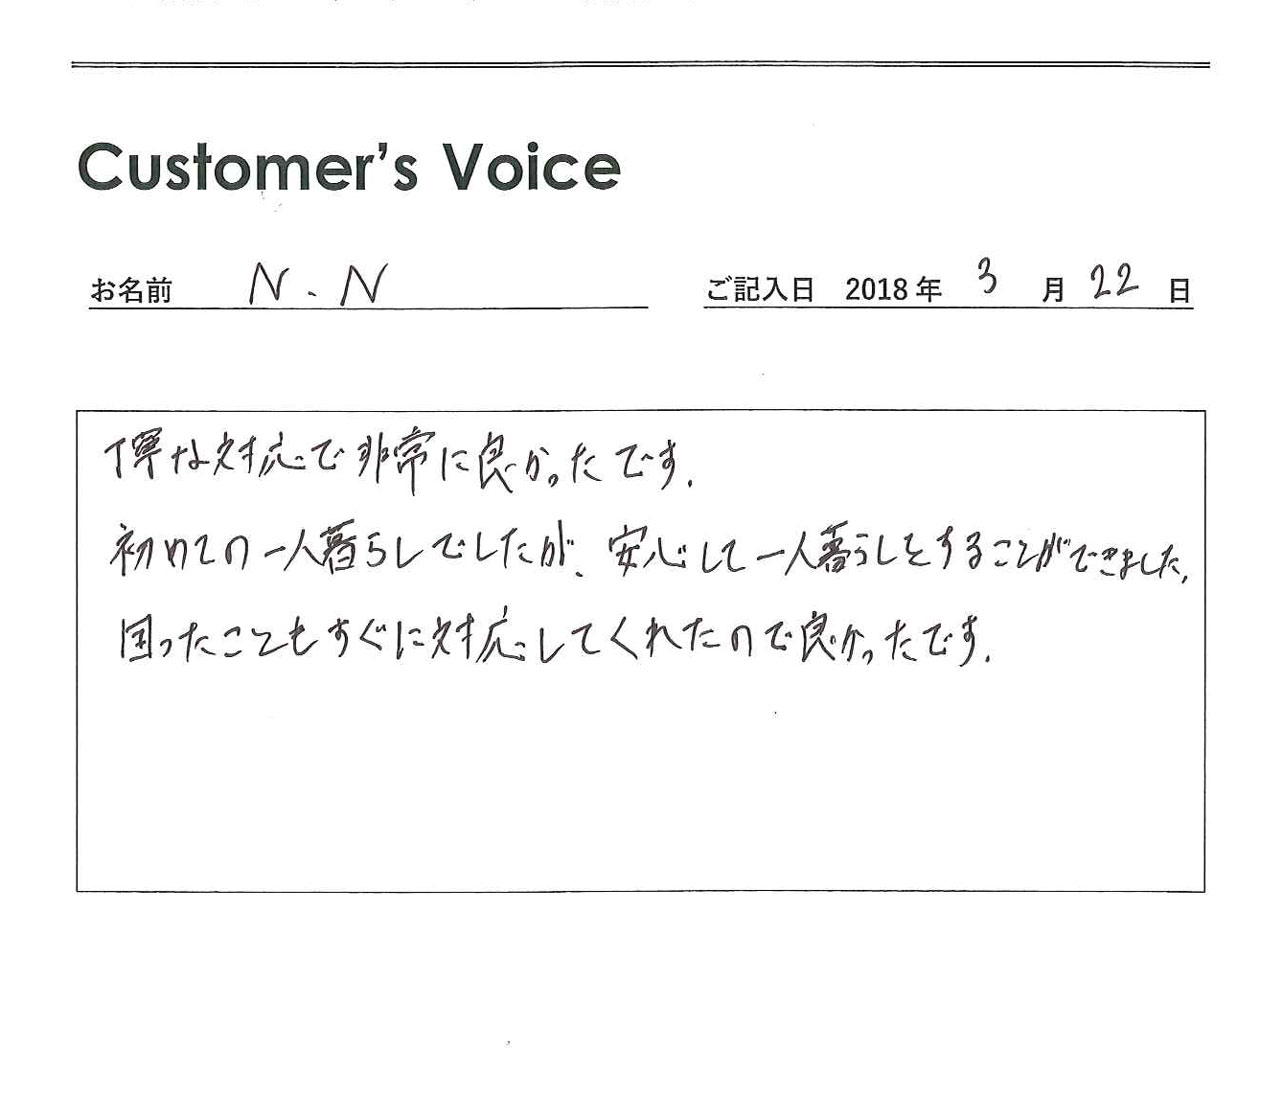 Customer's Voice
お名前 N.N ご記入日 2018年 3月 22日
丁寧な対応で非常に良かったです.
初めての一人暮らしでしたが、安心して一人暮らしをすることができました.
困ったこともすぐに対応してくれたので良かったです.